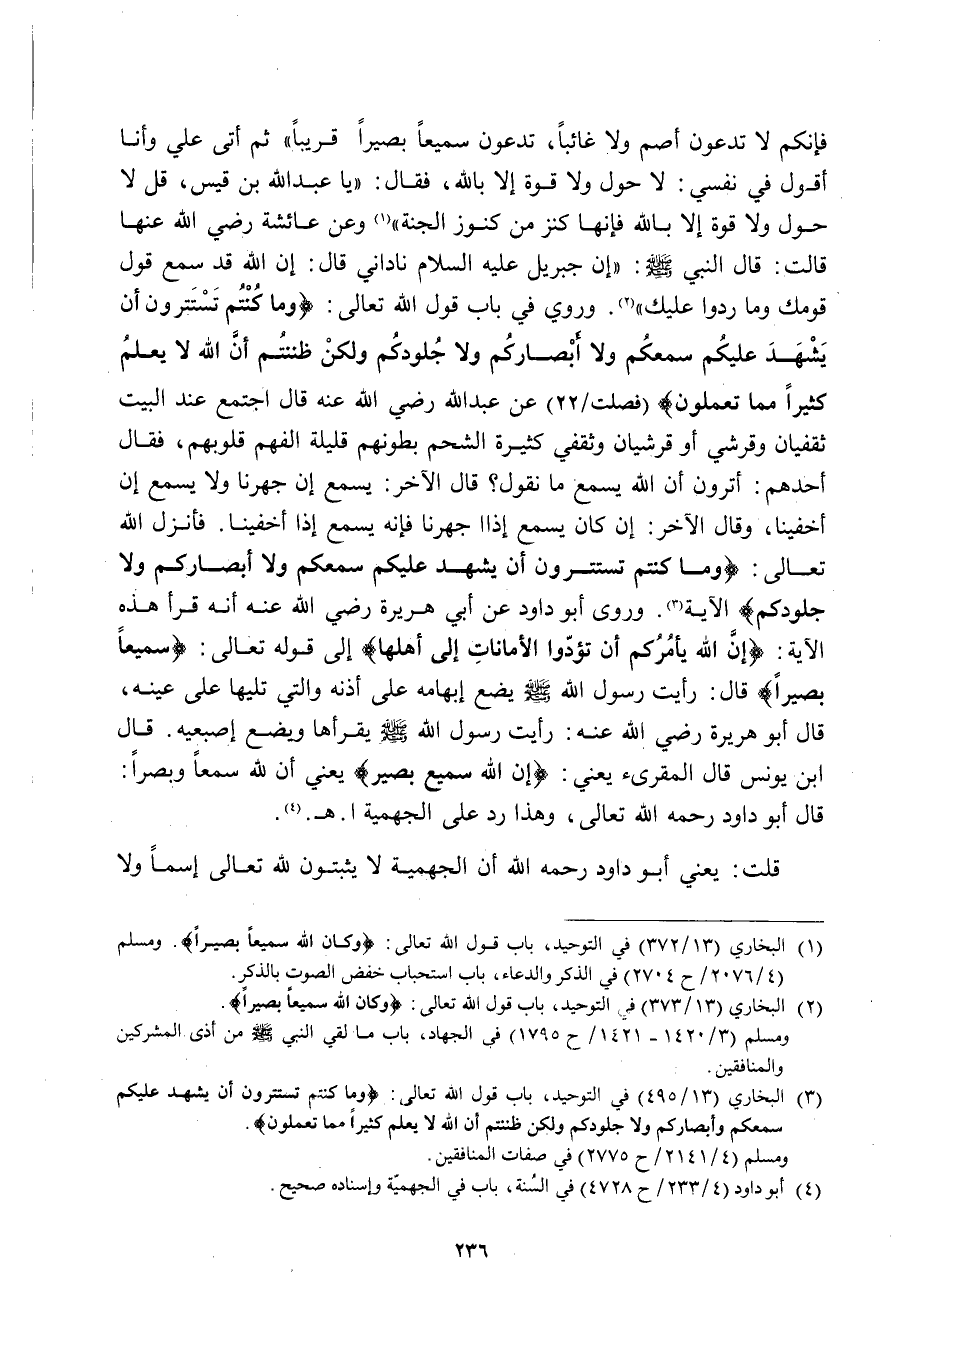 فإنكم لا تدعون أصم ولا غائباً، تدعون سميعاً بصيراً قريباً» ثم أتى علي وأنا
أقول في نفسي: لا حول ولا قوة إلا بالله، فقال: «يا عبدالله بن قيس، قل لا
حول ولا قوة إلا بالله فإنها كنز من كنوز الجنة»(١) وعن عائشة رضي الله عنها
قالت: قال النبي ﷺ: «إن جبريل عليه السلام ناداني قال: إن الله قد سمع قول
قومك وما ردوا عليك»(٢). وروي في باب قول الله تعالى: ﴿وما كُنْتُم تَسْتَترون أن
يَشْهَدَ عليكُم سمعكُم ولا أَبْصاركُم ولا جُلودكُم ولكنْ ظننتُم أنَّ الله لا يعلمُ
كثيراً مما تعملون﴾ (فصلت/٢٢) عن عبدالله رضي الله عنه قال اجتمع عند البيت
ثقفيان وقرشي أو قرشيان وثقفي كثيرة الشحم بطونهم قليلة الفهم قلوبهم، فقال
أحدهم: أترون أن الله يسمع ما نقول؟ قال الآخر: يسمع إن جهرنا ولا يسمع إن
أخفينا، وقال الآخر: إن كان يسمع إذاا جهرنا فإنه يسمع إذا أخفينا. فأنزل الله
تعالى: ﴿وما كنتم تستترون أن يشهد عليكم سمعكم ولا أبصاركم ولا
جلودكم﴾ الآية(٣). وروى أبو داود عن أبي هريرة رضي الله عنه أنه قرأ هذه
الآية: ﴿إنَّ الله يأمُرُكم أن تؤدّوا الأماناتِ إلى أهلها﴾ إلى قوله تعالى: ﴿سميعاً
بصيراً﴾ قال: رأيت رسول الله ﷺ يضع إبهامه على أذنه والتي تليها على عينه،
قال أبو هريرة رضي الله عنه: رأيت رسول الله ﷺ يقرأها ويضع إصبعيه. قال
ابن يونس قال المقرىء يعني: ﴿إن الله سميع بصير﴾ يعني أن لله سمعاً وبصراً:
قال أبو داود رحمه الله تعالى، وهذا رد على الجهمية ا. هـ.(٤).
قلت: يعني أبو داود رحمه الله أن الجهمية لا يثبتون لله تعالى إسماً ولا
(١) البخاري (٣٧٢/١٣) في التوحيد، باب قول الله تعالى: ﴿وكان الله سميعاً بصيراً﴾. ومسلم
(٢٠٧٦/٤/ ح ٢٧٠٤) في الذكر والدعاء، باب استحباب خفض الصوت بالذكر.
(٢) البخاري (٣٧٣/١٣) في التوحيد، باب قول الله تعالى: ﴿وكان الله سميعاً بصيراً﴾.
ومسلم (١٤٢٠/٣ - ١٤٢١/ ح ١٧٩٥) في الجهاد، باب ما لقي النبي ﷺ من أذى المشركين
والمنافقين.
(٣) البخاري (٤٩٥/١٣) في التوحيد، باب قول الله تعالى: ﴿وما كنتم تستترون أن يشهد عليكم
سمعكم وأبصاركم ولا جلودكم ولكن ظننتم أن الله لا يعلم كثيراً مما تعملون﴾.
ومسلم (٢١٤١/٤/ ح ٢٧٧٥) في صفات المنافقين.
(٤) أبو داود (٢٣٣/٤/ ح ٤٧٢٨) في السُنة، باب في الجهميّة وإسناده صحيح.
٢٣٦